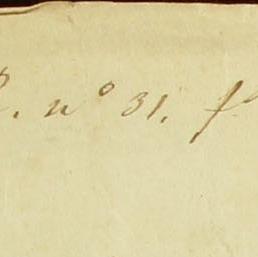 . n° 31. f